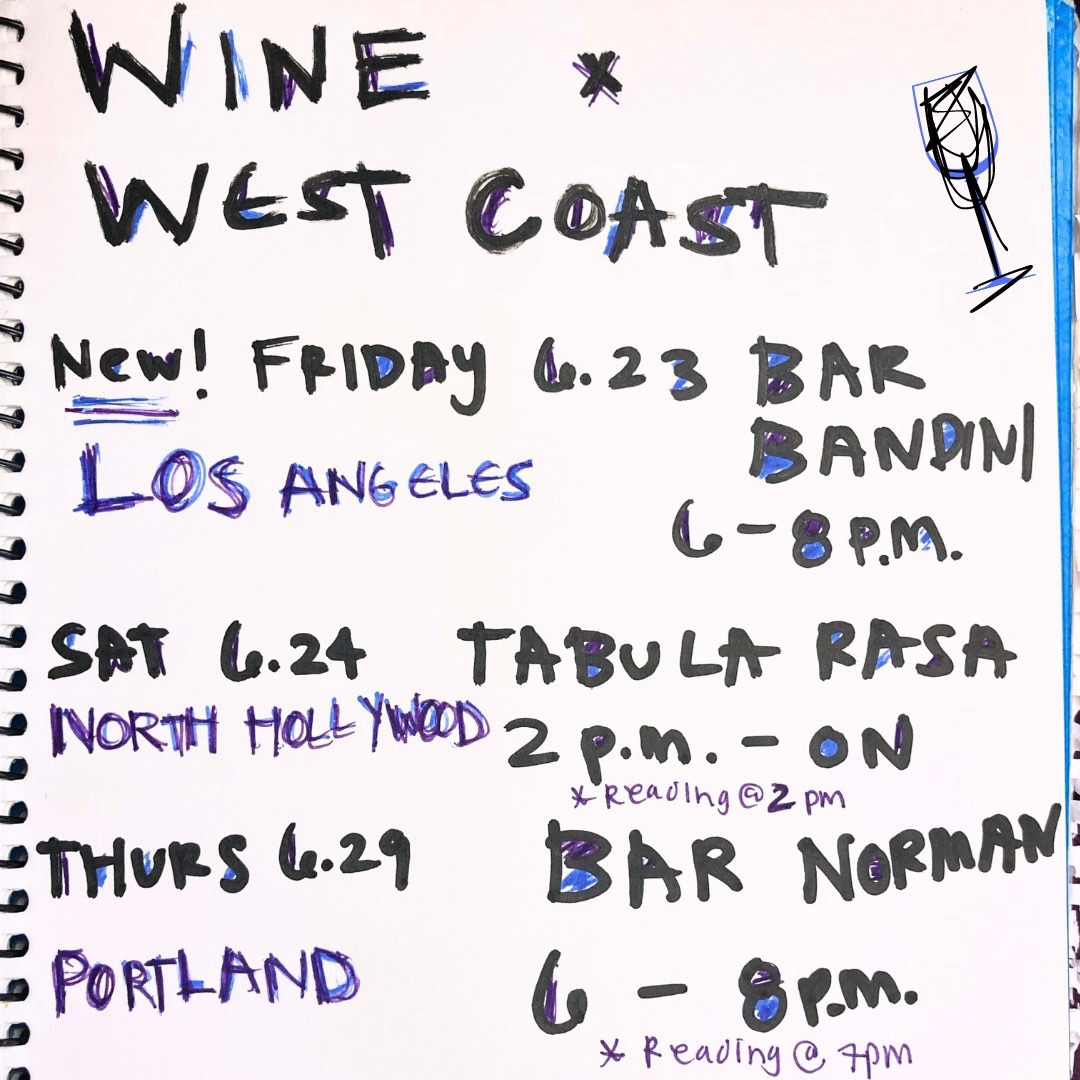 WINE x
WEST COAST
New! FRIDAY 6.23 BAR
BANDINI
LOS ANGELES
6-8 P.M.
SAT 6.24 TABULA RASA
NORTH HOLLYWOOD 2 p.m. - ON
* Reading @ 2 pm
THURS 6.29 BAR NORMAN
PORTLAND 6 - 8 P.M.
* Reading @ 7pm